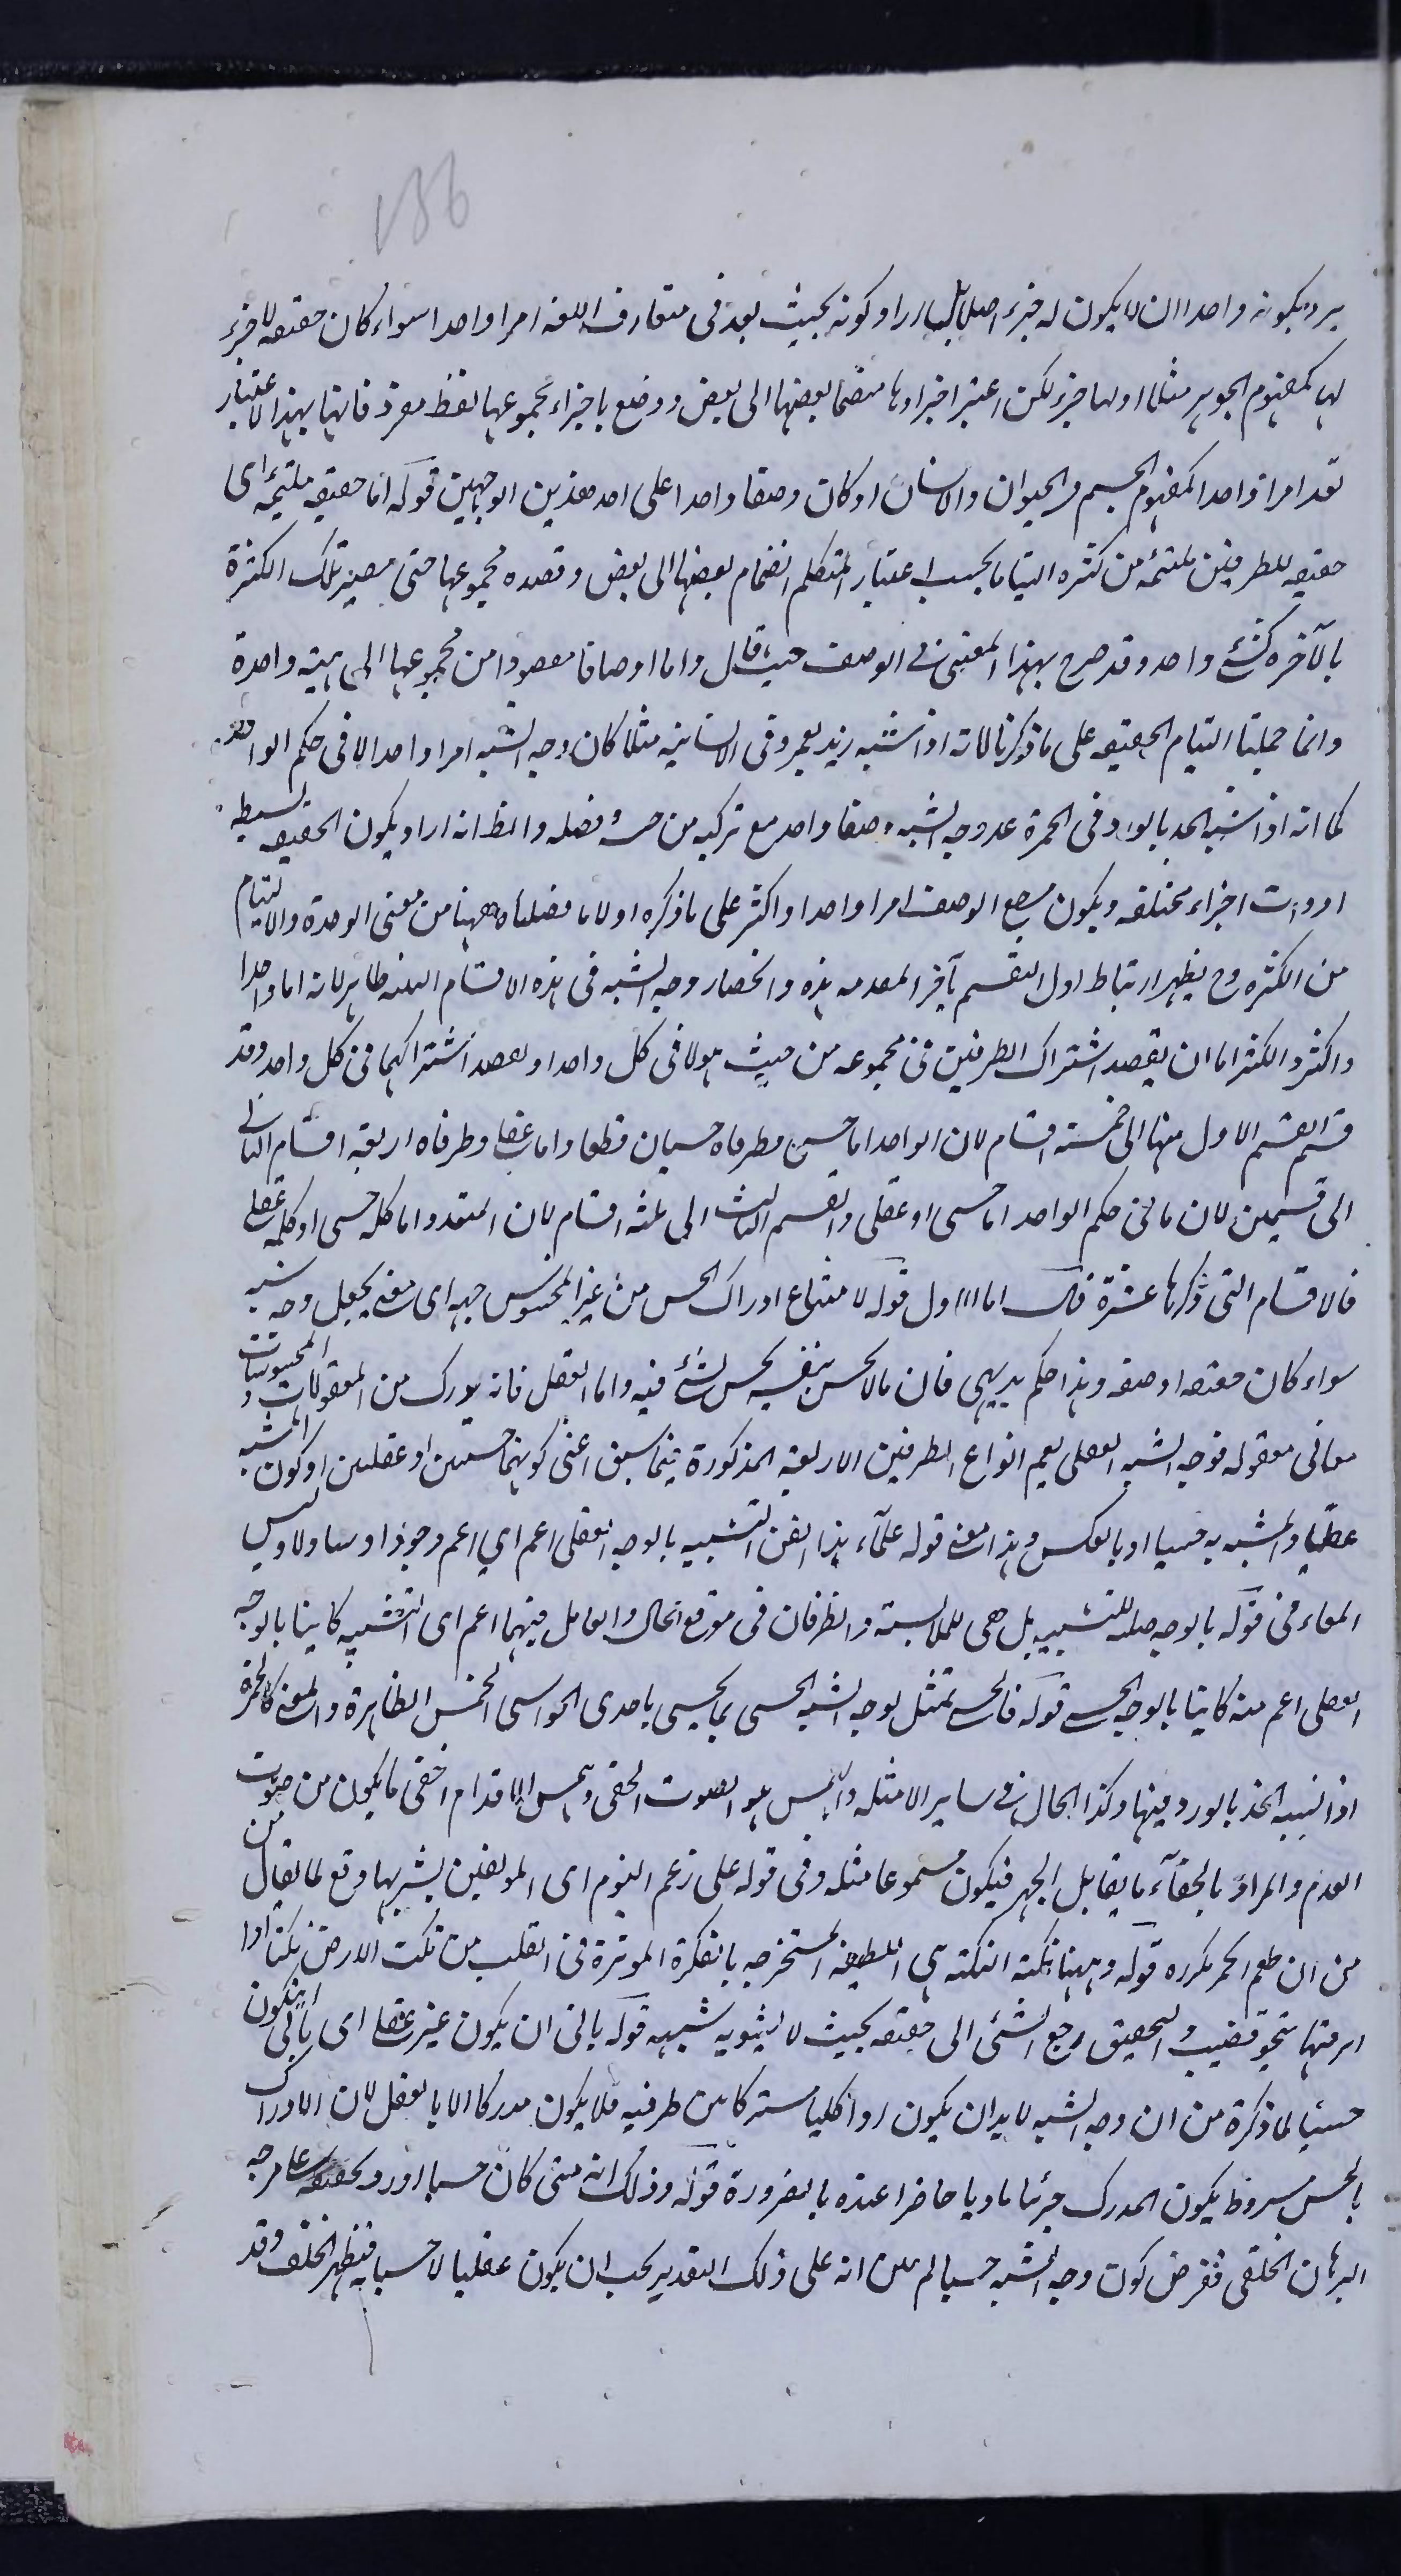 136
يرد بكونه واحدا ان لا يكون له جزء اصلا بل اراد كونه بحيث يعد فى متعارف اللغه امرا واحدا سواء كان حقيقه لا جزء
لها كمفهوم الجوهر مثلا او لها جزء لكن اعتبر اجزاوها منضما بعضها الى بعض ووضع باجزاء مجموعها لفظ مفرد فانها بهذا الاعتبار
تعد امرا واحدا كمفهوم الجسم والحيوان والانسان او كان وصفا واحدا على احد هذين الوجهين قوله اما حقيقه ملتئمه اى
حقيقه للطرفين ملتئمه من كثره التياما بحسب اعتبار المتكلم انضمام بعضها الى بعض وقصده مجموعها حتى يصير تلك الكثرة
بالآخره كشئ واحد وقد صرح بهذا المعنى فى الوصف حيث قال واما اوصافا مقصودا من مجموعها الى هيئه واحدة
وانما حملنا التيام الحقيقه على ما ذكرنا لانه اذا شبه زيد بعمرو فى الانسانيه مثلا كان وجه الشبه امرا واحدا لا فى حكم الواحد
كما انه اذا شبه الخد بالورد فى الحمرة عد وجه الشبه وصفا واحد مع تركبه من جنسه وفصله والظ انه اراد بكون الحقيقه بسيطه
او ذات اجزاء مختلفه وبكون الوصف امرا واحدا او اكثر على ما ذكره اولا ما فصلناه ههنا من معنى الوحدة والالتيام
من الكثره وح يظهر ارتباط اول التقسيم بآخر المقدمه هذه وانحصار وجه الشبه فى هذه الاقسام الثلثه ظاهر لانه اما واحدا
واكثر والاكثر اما ان يقصد اشتراك الطرفين فى مجموعه من حيث هو لا فى كل واحد او يقصد اشتراكهما فى كل واحد وقد
قسم القسم الاول منها الى خمسة اقسام لان الواحد اما حسى وطرفاه حسيان قطعا واما عقلى وطرفاه اربعة اقسام الثانى
الى قسمين لان ما فى حكم الواحد اما حسى او عقلى والقسم الثالث الى ثلثه اقسام لان المتعدد اما كله حسى او كله عقلى
فالاقسام التى ذكرها عشرة قوله لامتناع ادراك الحس من غير المحسوس جهه اى معنى يجعل وجه شبه
سواء كان حقيقه او صفه وهذا حكم بديهى فان ما لا يحس بنفسه لا يحس بشئ فيه واما العقل فانه يدرك من المعقولات والمحسوسات
معانى معقوله فوجه الشبه العقلى يعم انواع الطرفين الاربعة المذكورة فيما سبق اعنى كونهما حسيين او عقليين او كون المشبه
عقليا والمشبه به حسيا او بالعكس وهذا معنى قوله علمآء هذا الفن التشبيه بالوجه العقلى اعم اي اعم وجودا وليس
الباء فى قوله بالوجه صله للتشبيه بل هى للملابسة والظرفان فى موقع الحال والعامل فيهما اعم اى التشبيه كاينا بالوجه
العقلى اعم منه كاينا بالوجه الحسى قوله فالحسى تمثيل لوجه الشبه الحسى بما يحس باحدى الحواس الخمس الظاهرة والمعنى كالحمرة
اذا شبه الخد بالورد فيها وكذا الحال فى ساير الامثله والهمس هو الصوت الخفى وهمس الاقدام اخفى ما يكون من صوت
القدم والمراد بالخفآء ما يقابل الجهر فيكون مسموعا مثله وفى قوله على زعم القوم اى المولعين بشربها دفع لما يقال من
من ان طعم الخمر مكره قوله وههنا نكته النكته هى اللطيفه المستخرجه بالفكرة الموثرة فى القلب من نكت الارض نكتا اذا
اثر فيها بنحو قضيب والتحقيق رجع الشئى الى حقيقته بحيث لا يشوبه شبهه قوله يابى ان يكون غير عقلى اى يابى ان يكون
حسيا لما ذكره من ان وجه الشبه لا بد ان يكون امرا كليا مشتركا بين طرفيه فلا يكون مدركا الا بالعقل لان الادراك
بالحس مشروط بكون المدرك جزئيا ماديا حاضرا عنده بالضرورة قوله وذلك انه متى كان حسيا اورد تحقيقه على وجه
البرهان الخلفى ففرض كون وجه الشبه حسيا ثم بين انه على ذلك التقدير يجب ان يكون عقليا لا حسيا فيظهر الخلف وقد